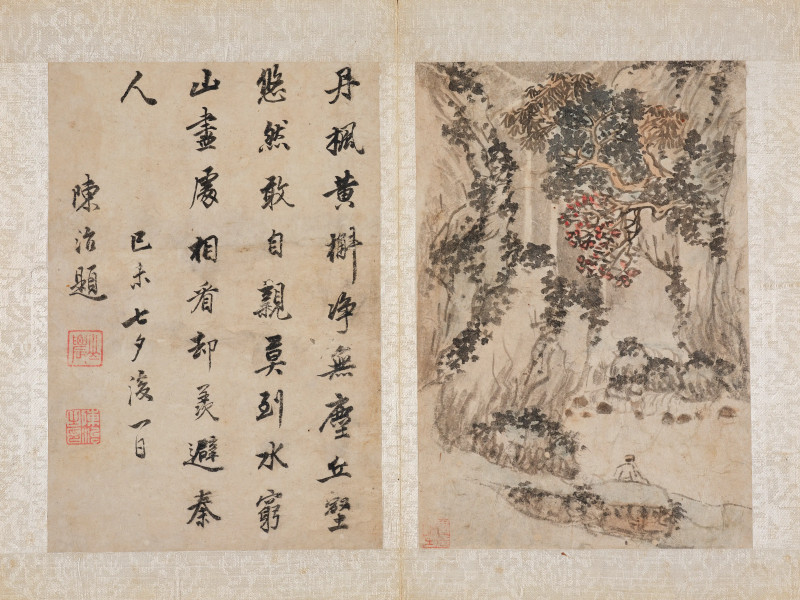 丹楓黄槲净無塵丘壑
悠然敢自親莫到水窮
山盡處相看却羡避秦
人
己未七夕後一日
陳治題